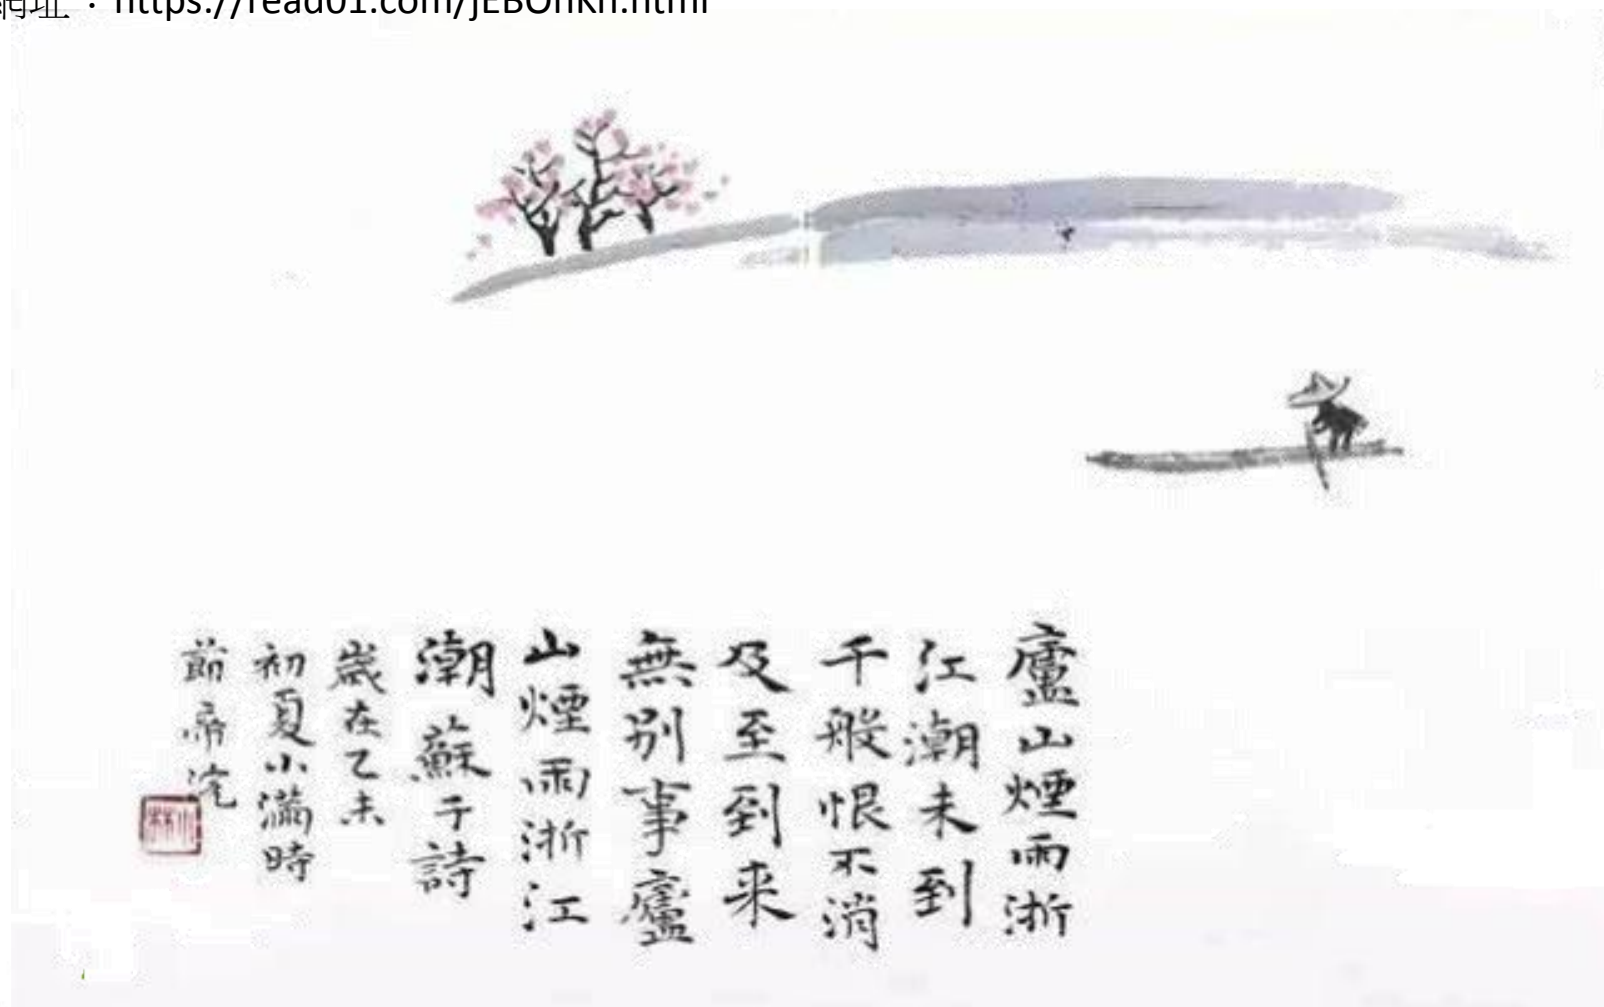 網址：https://read01.com/jEBOnKn.html
廬山煙雨浙
江潮未到
千般恨不消
及至到来
無别事廬
山煙雨浙江
潮 蘇子詩
歲在乙未
初夏小滿時